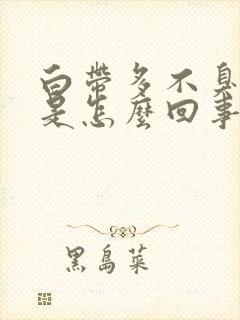 白帶多不臭
是怎麼回事
黑島菜